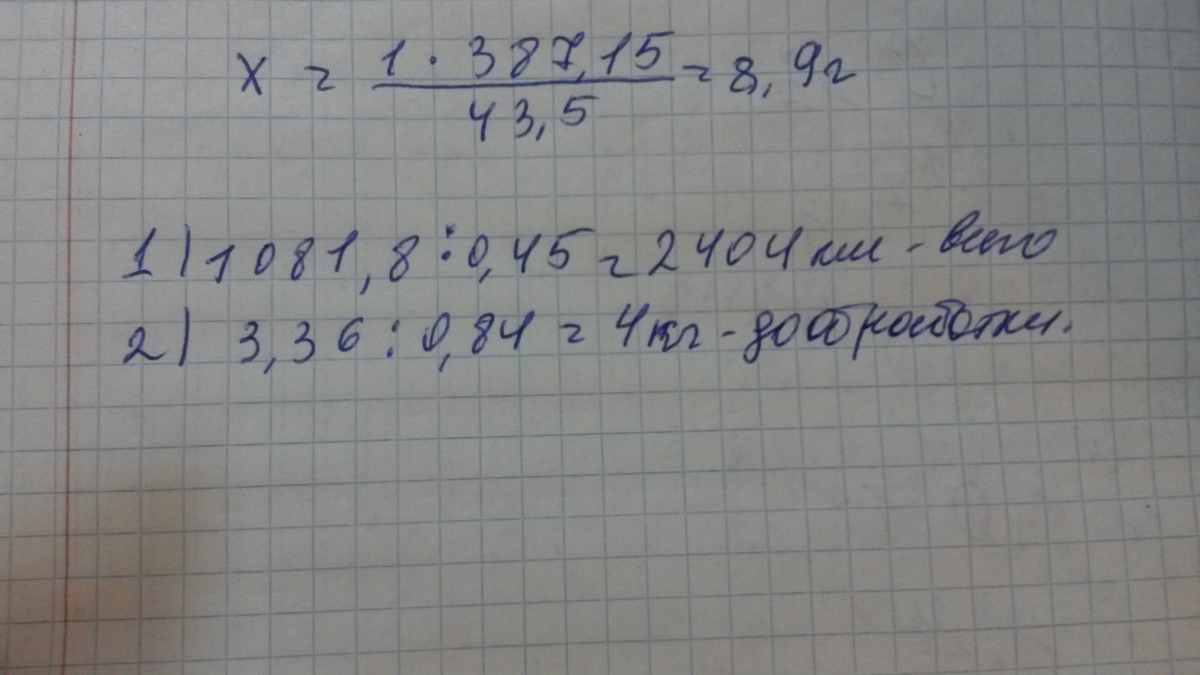 x = 1 · 387,15 / 43,5 = 8,9г
1) 1081,8 : 0,45 = 2404 км - всего
2) 3,36 : 0,84 = 4кг - до обработки.